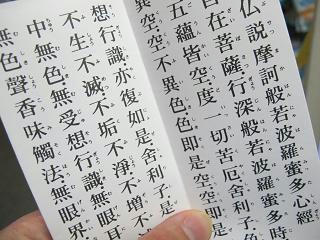 仏説摩訶般若波羅蜜多心経
自在菩薩行深般若波羅蜜多時
五蘊皆空度一切苦厄舍利子
異空空不異色色即是空空即是
想行識亦復如是舍利子是
不生不滅不垢不淨不増不
中無色無受想行識無眼
無色聲香味觸法無眼界